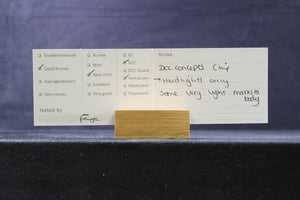 Excellent/as new
As new
DC
Notes
Good Runner
Mint
DCC
DCC concepts Chip
Near mint
DCC Sound
→ Headlights only
Average/clutters
Excellent
Working lights
Some very light marks to
body
Non-runner
Very good
Detail pack
Paperwork
Tested By